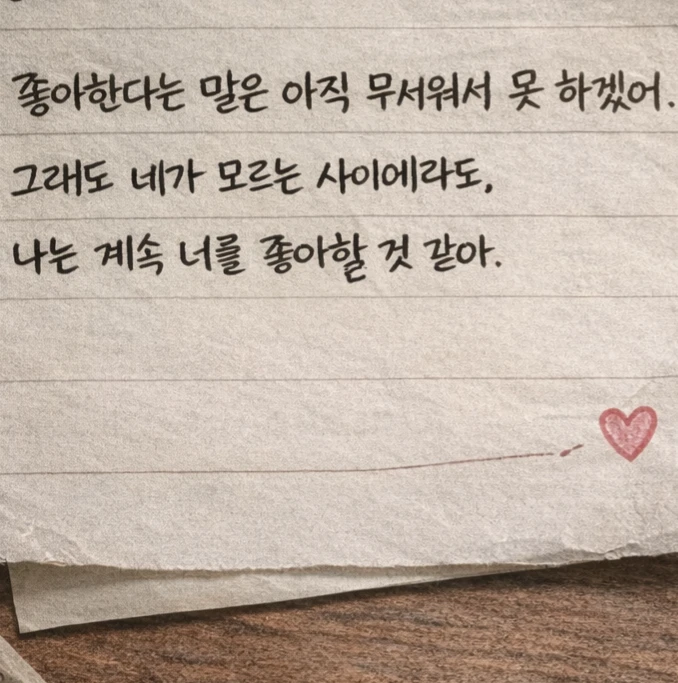 좋아한다는 말은 아직 무서워서 못 하겠어.
그래도 네가 모르는 사이에라도,
나는 계속 너를 좋아할 것 같아.